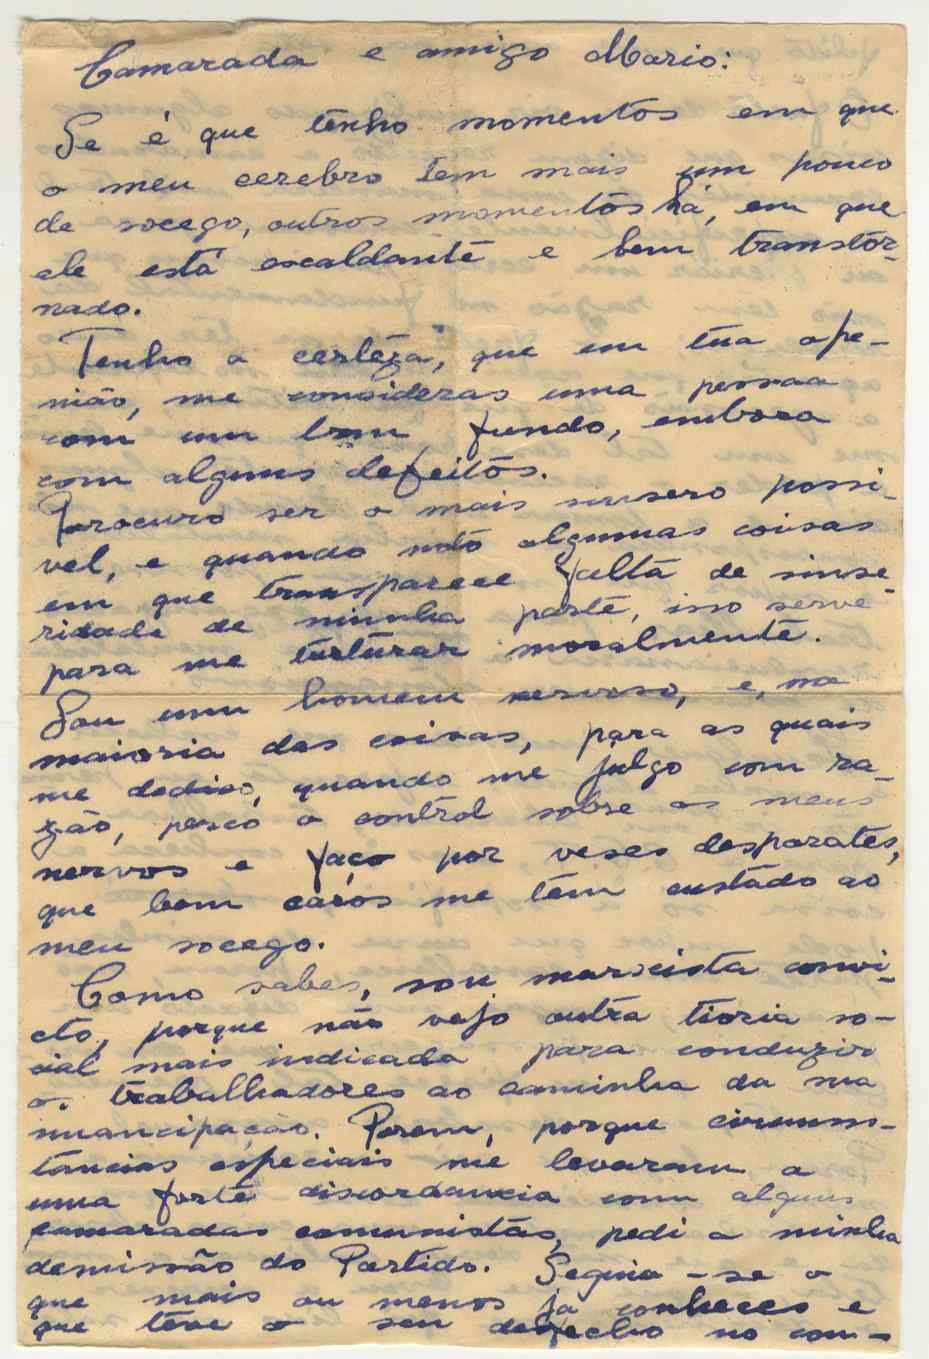 Camarada e amigo Mario:
Se é que tenho momentos em que
o meu cerebro tem mais um pouco
de socego, outros momentos há, em que
ele está escaldante e bem transtor-
nado.
Tenho a certêza, que em tua ope-
nião, me consideras uma pessoa
com um bom fundo, embora
com alguns defeitos.
Porocuro ser o mais sinsero possi-
vel, e quando noto algumas coisas
em que transparece falta de sinse-
ridade de minha parte, isso serve
para me torturar moralmente.
Sou um homem nervoso, e, na
maioria das coisas, para as quais
me dedico, quando me julgo com ra-
zão, perco o control sobre os meus
nervos e faço por veses desparates,
que bem caros me têm custado ao
meu socego.
Como sabes, sou marxista convi-
cto, porque não vejo outra tioria so-
cial mais indicada para conduzir
os trabalhadores ao caminho da sua
imancipação. Porem, porque circuns-
tancias especiais me levaram a
uma forte discordancia com alguns
camaradas comunistas, pedi a minha
demissão do Partido. Seguio-se o
que mais ou menos já conheces e
que teve o seu desfecho no com-